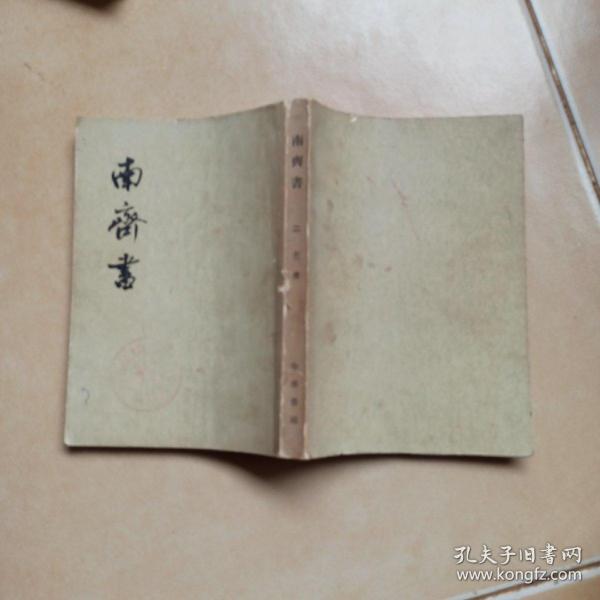 南齊書
南齊書
中華書局
孔夫子旧書网
www.kongfz.com